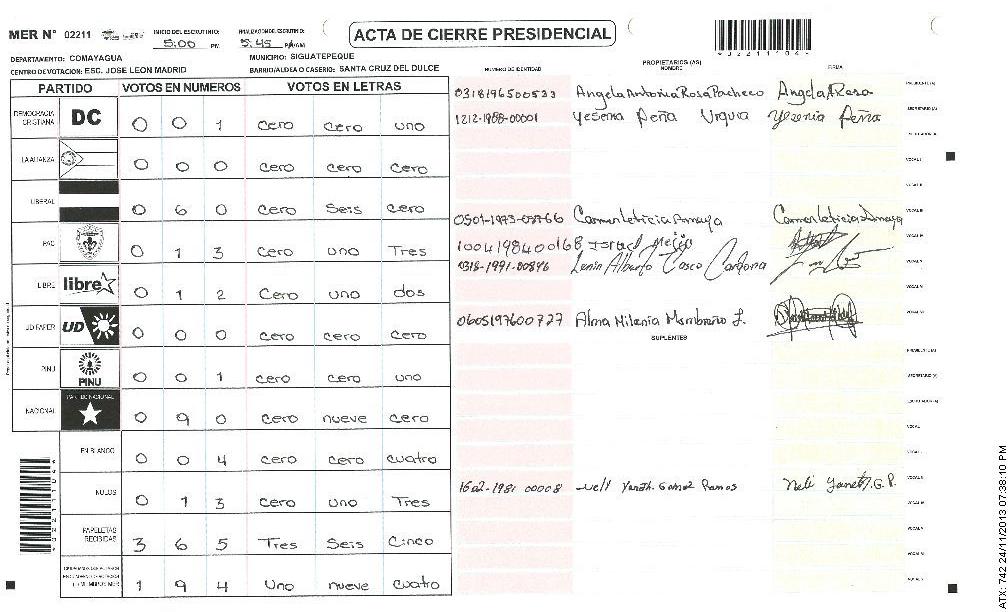 MER N° 02211
INICIO DEL ESCRUTINIO: 5:00 PM
FINALIZACION DEL ESCRUTINIO: 5:45 PM
ACTA DE CIERRE PRESIDENCIAL
DEPARTAMENTO: COMAYAGUA
MUNICIPIO: SIGUATEPEQUE
CENTRO DE VOTACION: ESC. JOSE LEON MADRID
BARRIO/ALDEA O CASERIO: SANTA CRUZ DEL DULCE
NUMERO DE IDENTIDAD
PROPIETARIOS (AS)
NOMBRE
FIRMA
PARTIDO VOTOS EN NUMEROS VOTOS EN LETRAS
DEMOCRACIA CRISTIANA DC 0 0 1 cero cero uno
LA ALIANZA 0 0 0 cero cero cero
LIBERAL 0 6 0 cero Seis cero
PAC 0 1 3 cero uno Tres
LIBRE libre 0 1 2 Cero uno dos
UD FAPER UD 0 0 0 cero cero cero
PINU PINU 0 0 1 cero cero uno
NACIONAL PARTIDO NACIONAL 0 9 0 cero nueve cero
EN BLANCO 0 0 4 cero cero cuatro
NULOS 0 1 3 cero uno Tres
PAPELETAS RECIBIDAS 3 6 5 Tres Seis Cinco
1 9 4 Uno nueve cuatro
0318196500533 Angela Antonia Rosa Pacheco Angela A Rosa
1212-1988-00001 Yesenia Peña Urquia Yesenia Peña
0501-1973-03766 Carmen Leticia Amaya Carmen Leticia Amaya
1004198400168 Israel Mejia
0318-1991-00846 Lenin Alberto Cosco Cardona
0605197600727 Alma Milenia Mombreño J.
SUPLENTES
1602-1981 00008 Neli Yaneth Gomez Ramos Neli Yanet J. G.P.
PRESIDENTE (A)
SECRETARIO (A)
VOCAL I
VOCAL II
VOCAL III
VOCAL IV
VOCAL V
VOCAL VI
PRESIDENTE (A)
SECRETARIO (A)
ESCRUTADOR (A)
VOCAL I
ATX: 742 24/11/2013 07:38:10 PM